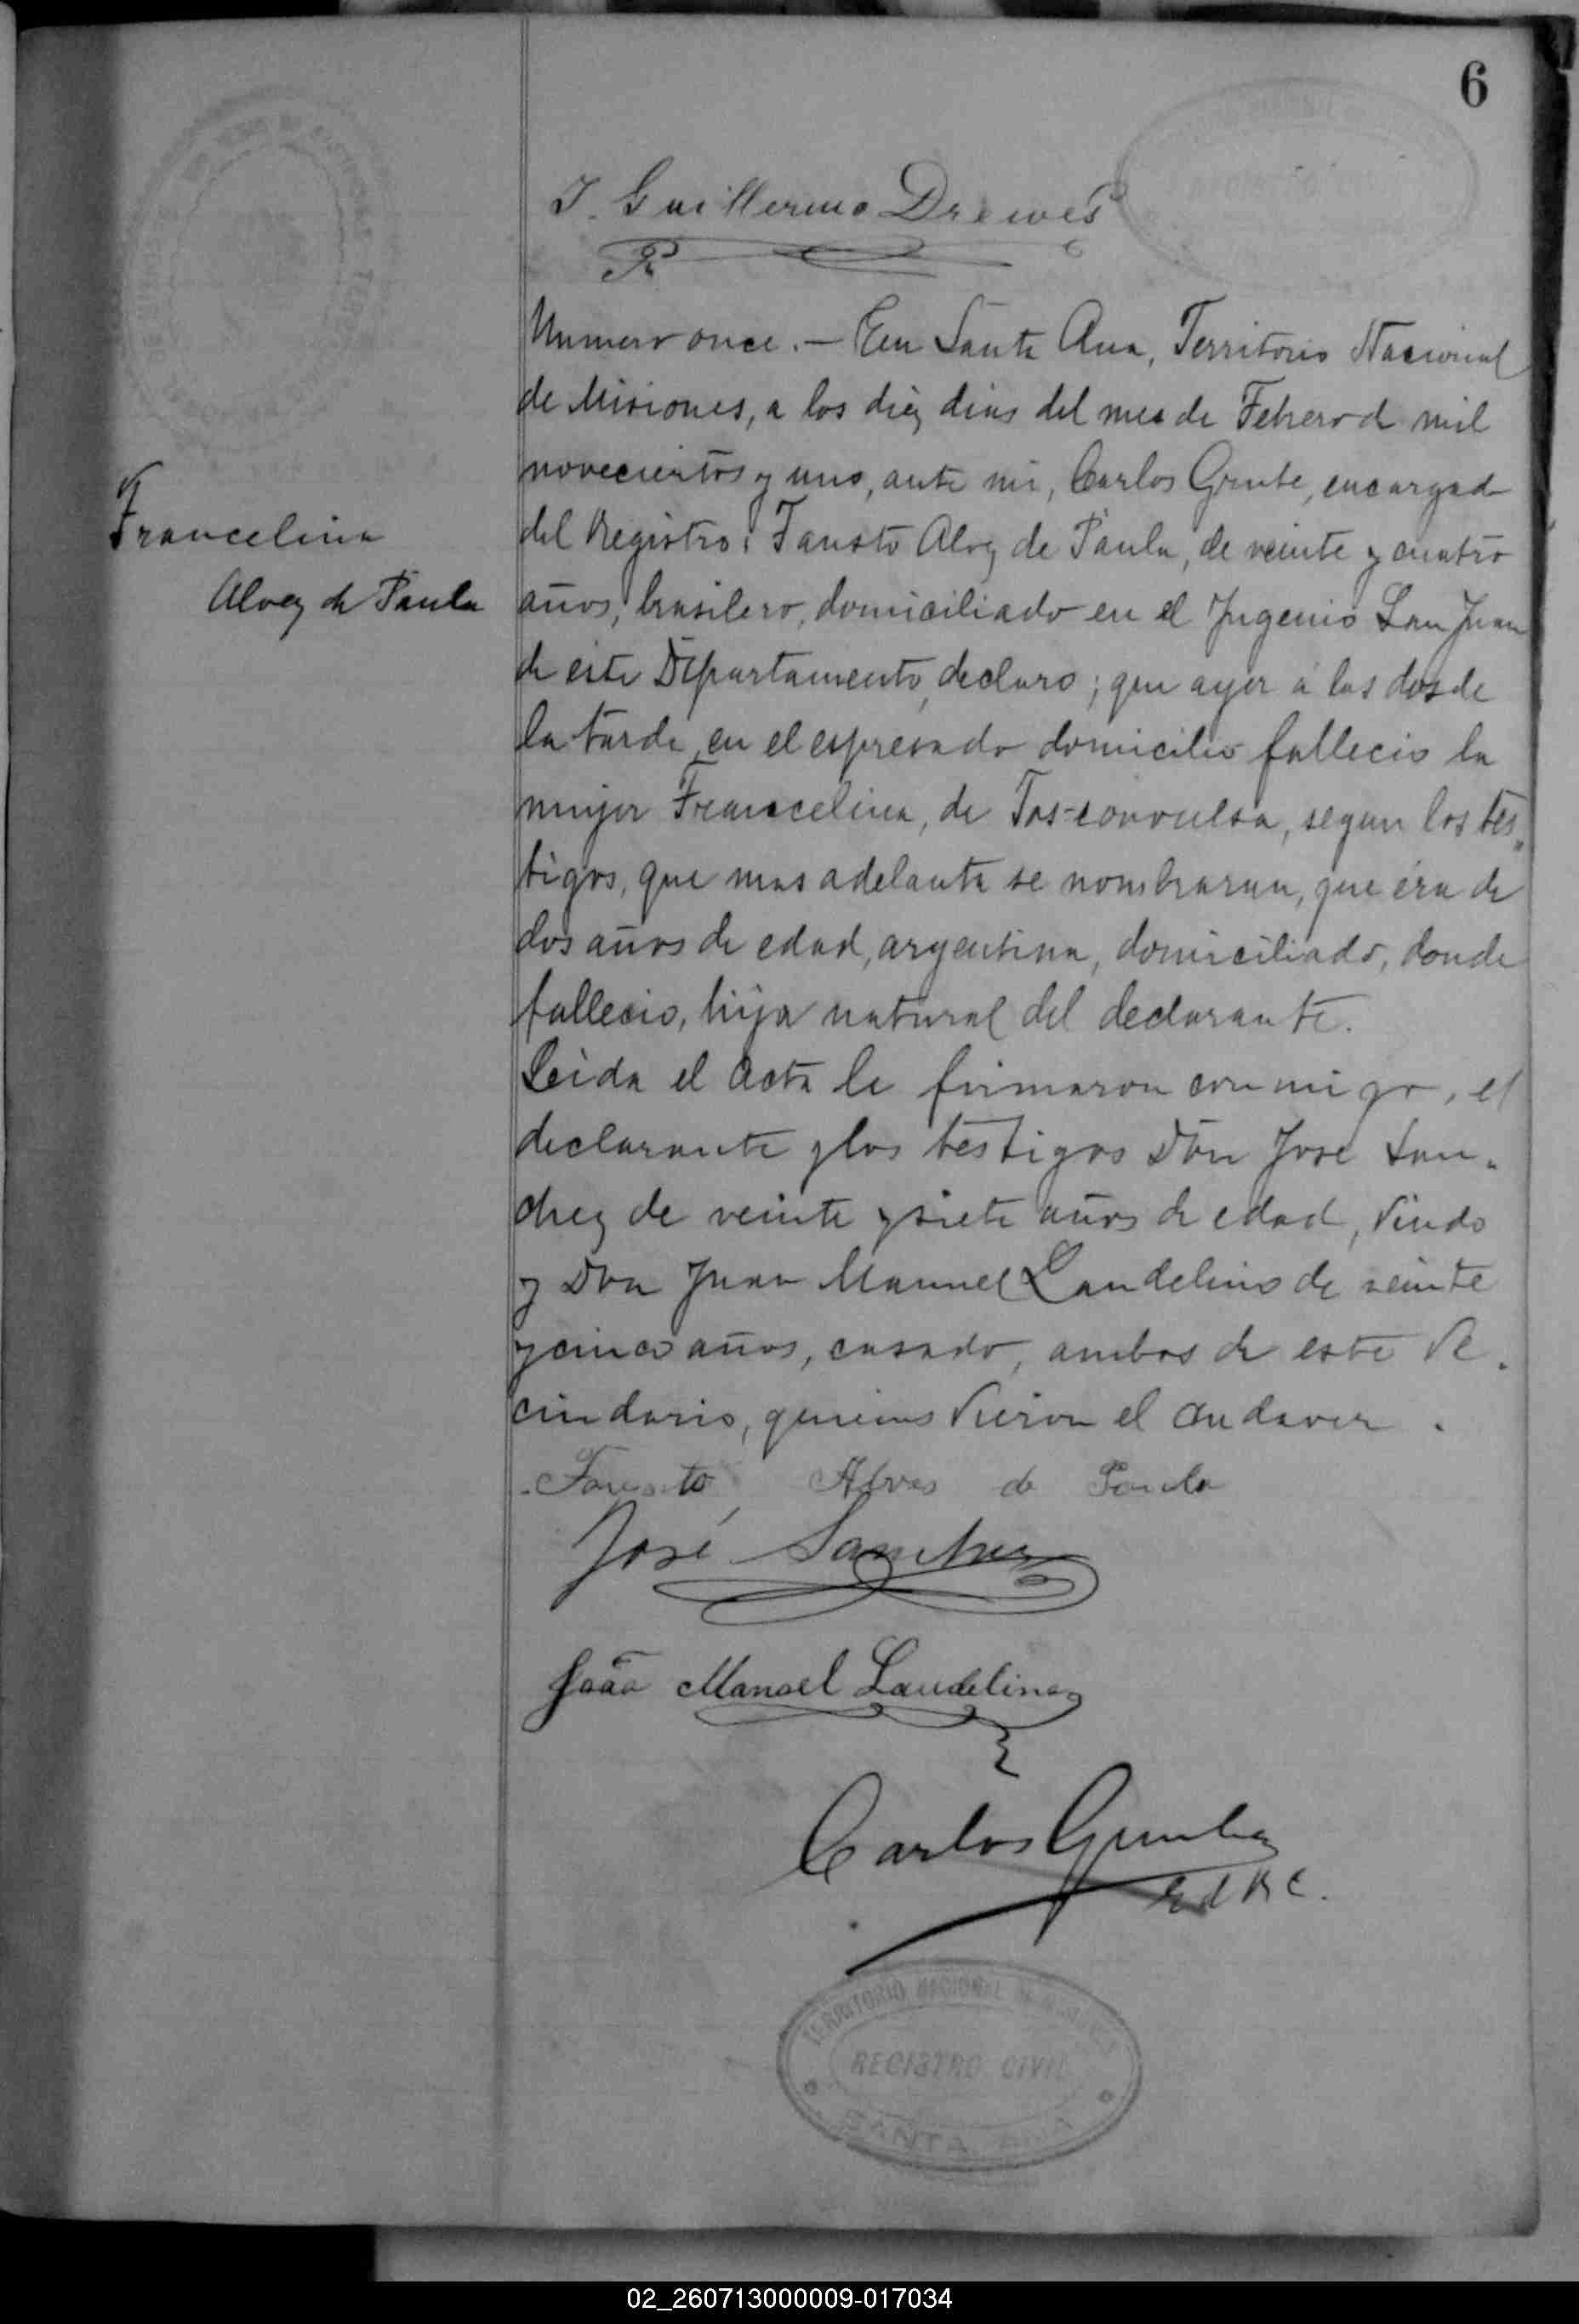 6
T. Guillermo Drewes
Numero once. — En Santa Ana, Territorio Nacional
de Misiones, a los diez dias del mes de Febrero d mil
novecientos y uno, ante mi, Carlos Grute, encargado
del Registro: Fausto Alvez de Paula, de veinte y cuatro
años, brasilero, domiciliado en el Ingenio San Juan
de este Departamento, declaro; que ayer a las dos de
la tarde, en el espresado domicilio fallecio la
mujer Francelina, de Tos-convulsa, segun los tes„
tigos, que mas adelante se nombraran, que era de
dos años de edad, argentina, domiciliado, donde
fallecio, hija natural del declarante.
Leida el Acta le firmaron con migo, el
declarante y los testigos Don José San„
chez de veinte y siete años de edad, Viudo
y Don Juan Manuel Landelino de veinte
y cinco años, casado, ambos de este Ve„
cindario, quienes Vieron el Cadaver.
Francelina
Alvez de Paula
Fausto Alves de Paula
José Sanchez
João Manoel Laudelino
Carlos
E d R C.
TERRITORIO NACIONAL DE MISIONES
REGISTRO CIVIL
SANTA ANA
02_260713000009-017034